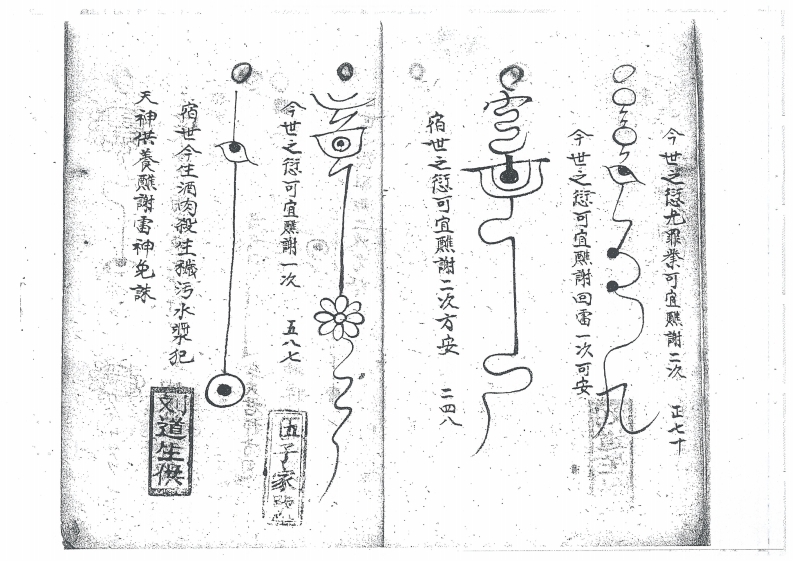 今世之愆尤罪業可宜醮謝二次 正七十
今世之愆可宜醮謝回雷一次可安
宿世之愆可宜醮謝二次方安 二四八
今世之愆可宜醮謝一次 五八七
五子家
宿世今生酒肉殺生穢污水漿犯
天神供養醮謝雷神免誅
刘道生供